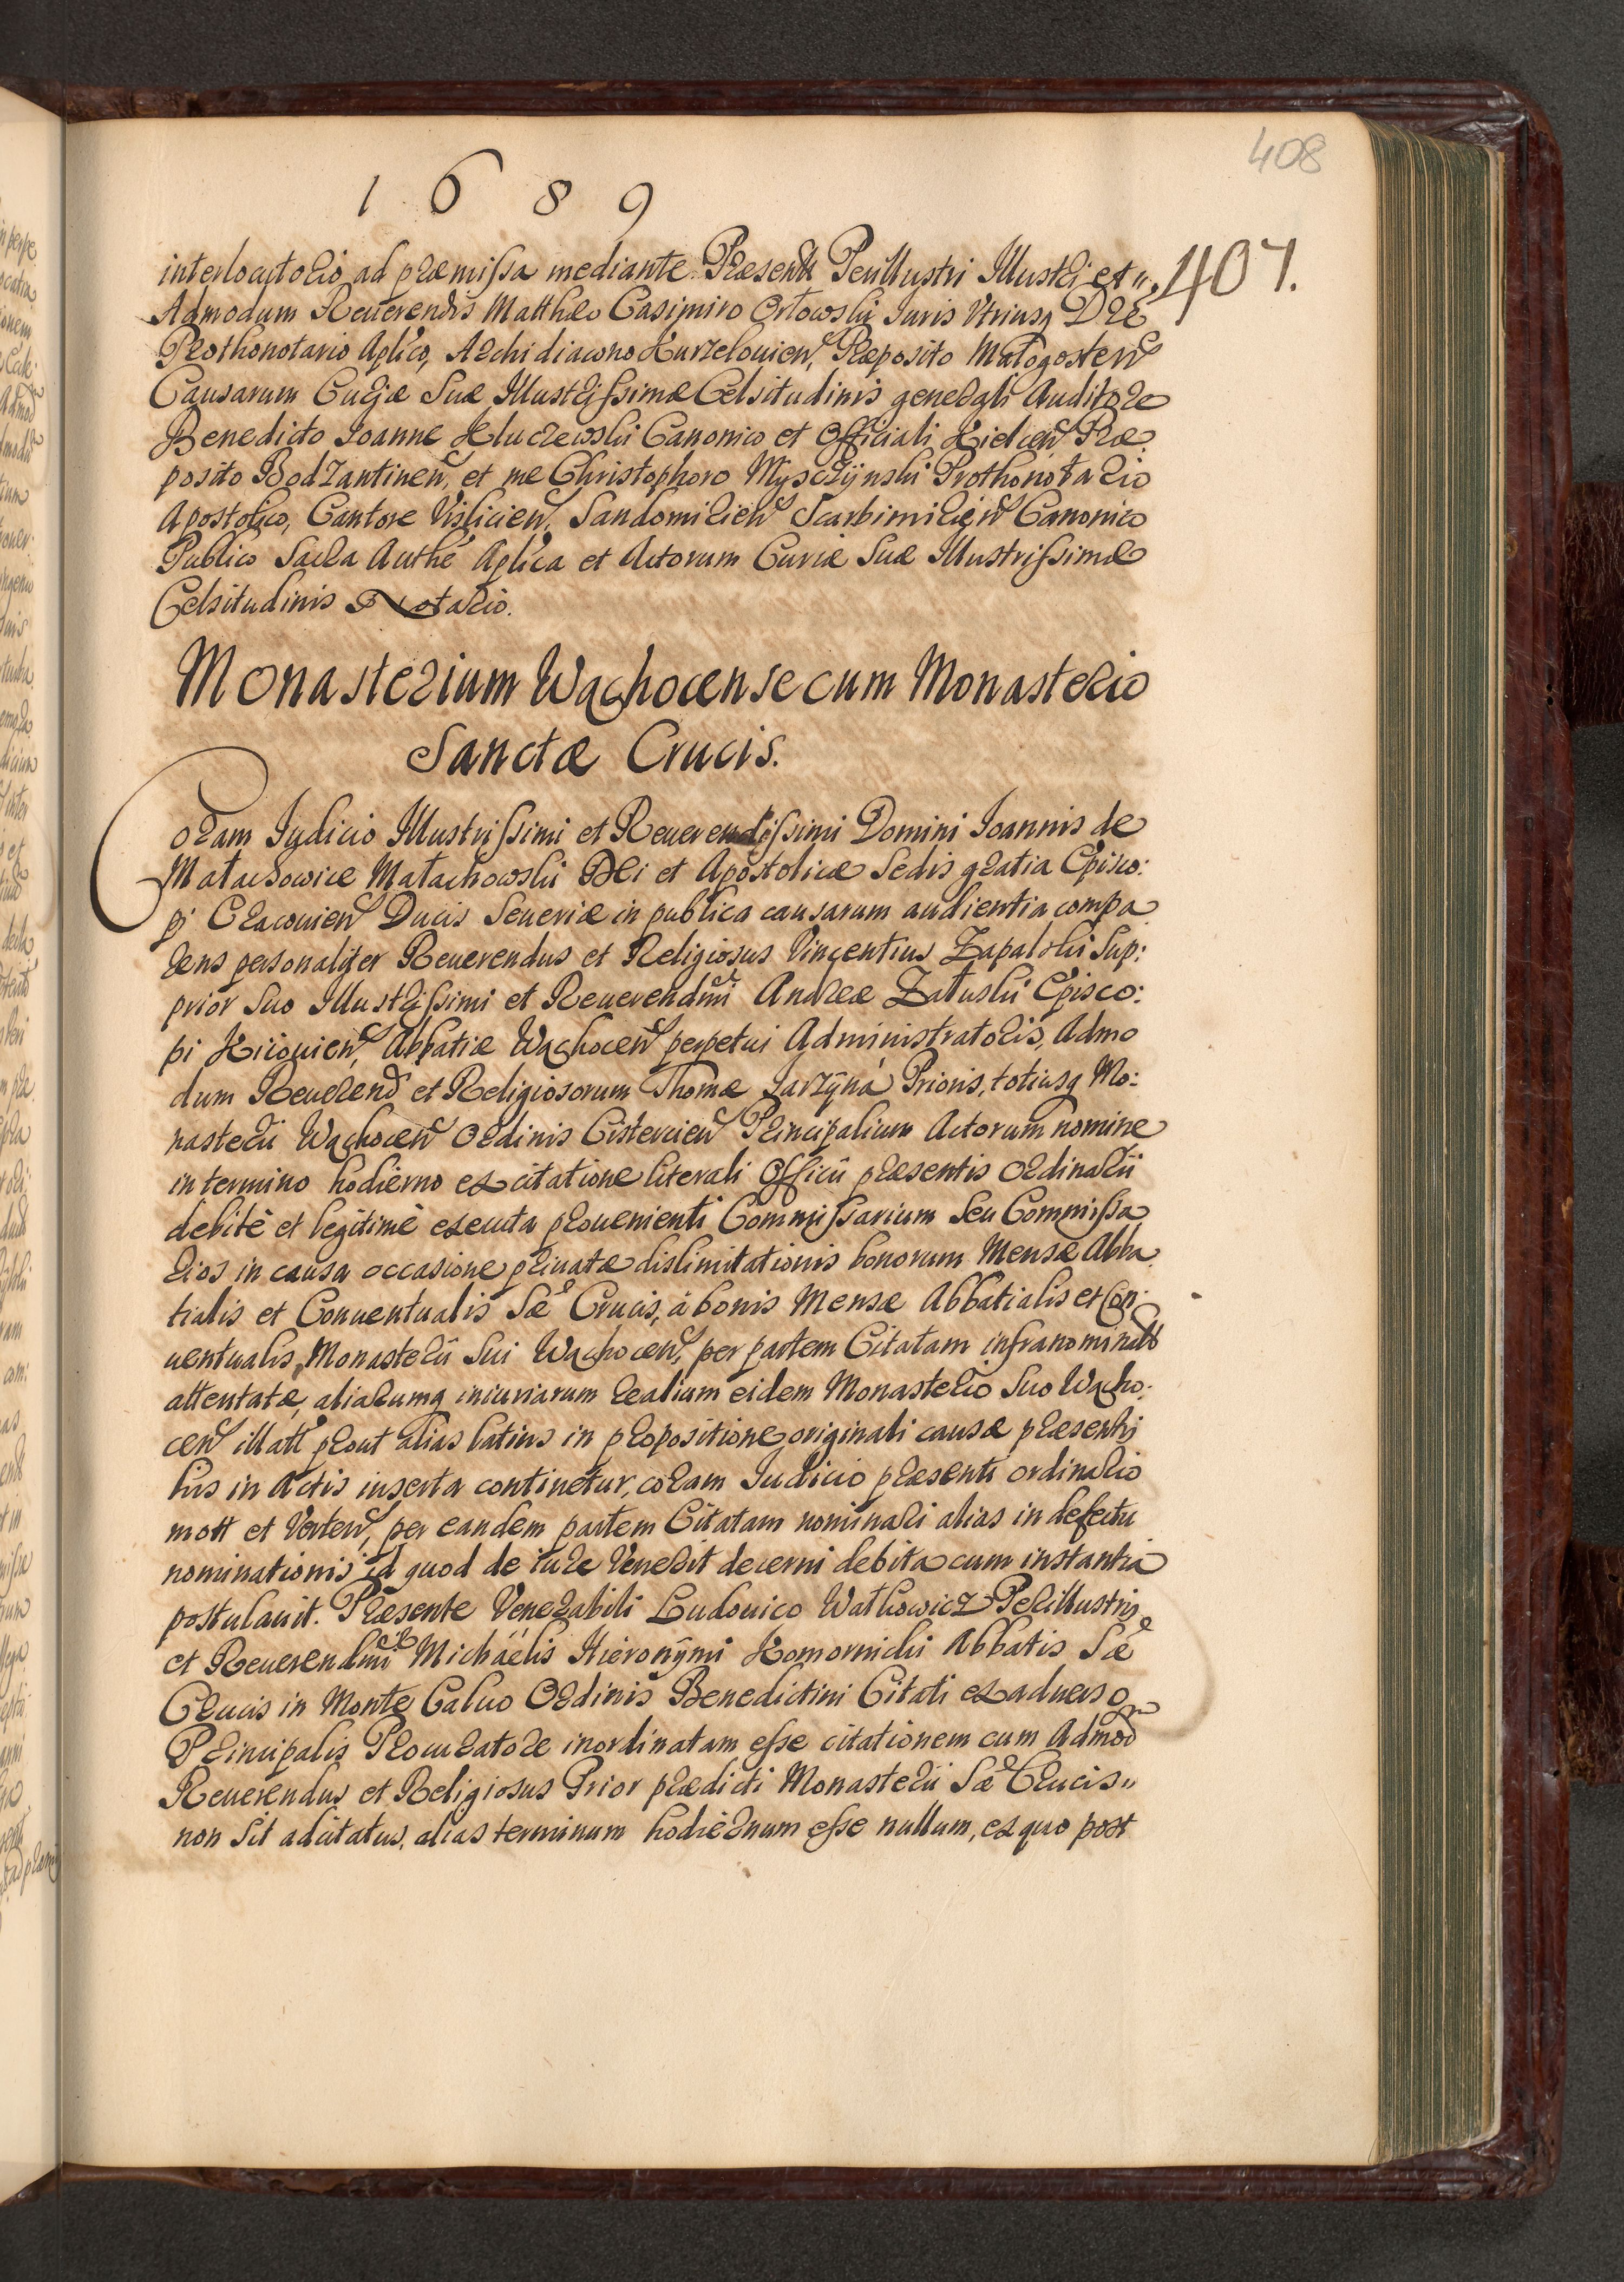 408
1 6 8 9
407.
interlocutorio ad præmissa mediante. Præsentt Perillustri Illustri et
Admodum Reuerendis Matthæo Casimiro Orłowski Iuris Vtriusq Dre
Prothonotario Aplico, Archidiacono Kurzelouien, Præposito Małogosten
Causarum Curiæ Suæ Illustrissimæ Celsitudinis generali Auditore
Benedicto Ioanne Kluczewski Canonico et Officiali Kielcen Præ
posito Bodzantinen, et me Christophoro Myszczÿnski Prothonotario
Apostolico, Cantore Vislicien, Sandomirien Scarbimirien Canonico
Publico Sacra Authe Aplica et Actorum Curiæ Suæ Illustrissimæ
Celsitudinis Notario.
Monasterium Wąchocense cum Monasterio
Sanctæ Crucis.
Coram Iudicio Illustrissimi et Reuerendissimi Domini Ioannis de
Małachowice Małachowski Dei et Apostolicæ Sedis gratia Episco:
pi Cracouien Ducis Seueriæ in publica causarum audientia compa
rens personaliter Reuerendus et Religiosus Vincentius Zapalski Sup:
prior suo Illustrissimi et Reuerendmi Andreæ Załuski Episco:
pi Kiiouien, Abbatiæ Wąchocen perpetui Administratoris, Admo
dum Reuerend et Religiosorum Thomæ Jarzÿna Prioris, totiusq Mo:
nasterii Wąchocen Ordinis Cistercien Principalium Actorum nomine
in termino hodierno ex citatione literali Officii præsentis Ordinarii
debitè et legitimè executa prouenienti Commissarium seu Commissa
rios in causa occasione priuatæ dislimitationis bonorum Mensæ Abba
tialis et Conuentualis Sæ Crucis, à bonis Mensæ Abbatialis et Con:
uentualis, Monasterii sui Wąchocen, per partem Citatam infranominatt
attentatæ, aliarumq iniuriarum realium eidem Monasterio suo Wącho:
cen illatt prout alias latius in propositione originali causæ præsenti
bus in Actis inserta continetur, coram Iudicio præsenti ordinario
mott et Verten, per eandem partem Citatam nominari alias in defectu
nominationis id quod de iure Venerit decerni debita cum instantia
postulauit. Præsente Venerabili Ludouico Wałkowicz Perillustris
et Reuerendmi Michäelis Hieronÿmi Komornicki Abbatis Sæ
Crucis in Monte Caluo Ordinis Benedictini Citati ex aduerso
Principalis Procuratore inordinatam esse citationem cum Admod
Reuerendus et Religiosus Prior prædicti Monasterii Sæ Crucis
non sit adcitatus, alias terminum hodiernum esse nullum, ex quo post